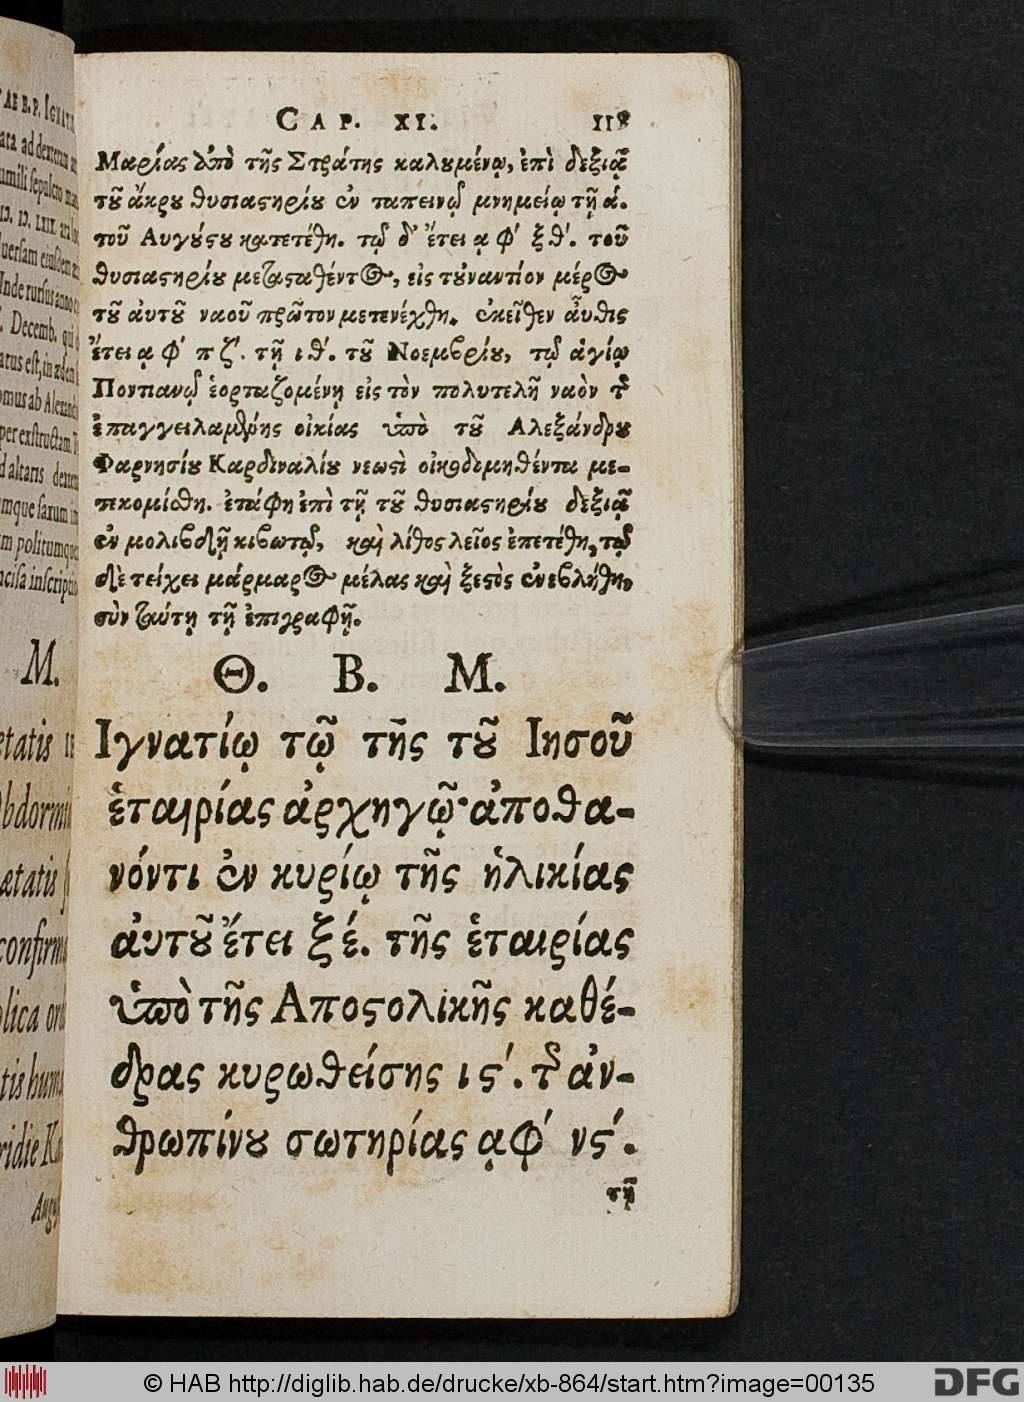 AE B. P. IGNATII
ara ad dexteram
umili sepulcro
IↃ. IↃ. LXIX ara
uersam eiusdem
Inde rursus anno
. Decemb. qui
atus est, in ædem
omus ab Alexand
per exstructam
d altaris dextera
mque saxum in
m politumque
ncisa inscriptio
M.
etatis
obdormi
ætatis
confirm
olica
tis hum
ridie Ka
Aug
CAP. XI. 118
Μαρίας ἀπὸ τῆς Στράτης καλουμένῳ, ἐπὶ δεξιᾷ
τοῦ ἄκρου θυσιαστηρίου ἐν ταπεινῷ μνημείῳ τῇ ά.
τοῦ Αυγούστου κατετέθη. τῷ δ' ἔτει α φ' ξ θ'. τοῦ
θυσιαστηρίου μεταταθέντος, εἰς τοὐναντίον μέρος
τοῦ αὐτοῦ ναοῦ πρῶτον μετενέχθη. ἐκεῖθεν αὖθις
ἔτει α φ' π ζ'. τῇ ι θ'. τοῦ Νοεμβρίου, τῷ ἁγίῳ
Ποντιανῷ ἑορταζομένῃ εἰς τὸν πολυτελῆ ναὸν τῆς
ἐπαγγειλαμένης οἰκίας ὑπὸ τοῦ Αλεξάνδρου
Φαρνησίου Καρδιναλίου νεωστὶ οἰκοδομηθέντα με-
τεκομίσθη. ἐτάφη ἐπὶ τῇ τοῦ θυσιαστηρίου δεξιᾷ
ἐν μολιβδῇ κιβωτῷ, καὶ λίθος λεῖος ἐπετέθη, τῷ
δὲ τείχει μάρμαρος μέλας καὶ ξεστὸς ἐνεβλήθη,
σὺν ταύτῃ τῇ ἐπιγραφῇ.
Θ. Β. Μ.
Ιγνατίῳ τῷ τῆς τοῦ Ιησοῦ
ἑταιρίας ἀρχηγῷ· ἀποθα-
νόντι ἐν κυρίῳ τῆς ἡλικίας
αὐτοῦ ἔτει ξέ. τῆς ἑταιρίας
ὑπὸ τῆς Αποστολικῆς καθέ-
δρας κυρωθείσης ι ϛ'. τῆς ἀν-
θρωπίνου σωτηρίας αφ' νϛ'.
τῇ
© HAB http://diglib.hab.de/drucke/xb-864/start.htm?image=00135
DFG